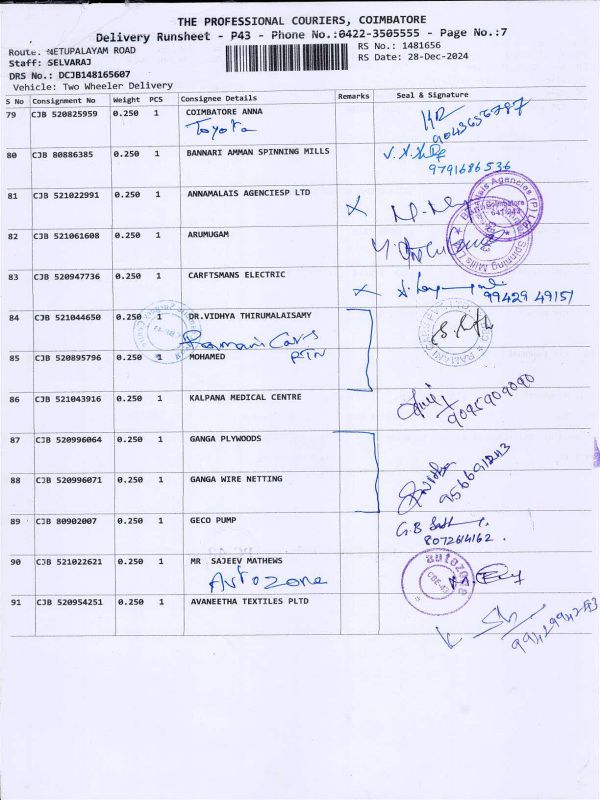 THE PROFESSIONAL COURIERS, COIMBATORE
Delivery Runsheet - P43 - Phone No.:0422-3505555 - Page No.:7
Route: NETUPALAYAM ROAD
RS No.: 1481656
Staff: SELVARAJ
RS Date: 28-Dec-2024
DRS No.: DCJB148165607
Vehicle: Two Wheeler Delivery
S No Consignment No Weight PCS Consignee Details Remarks Seal & Signature
79 CJB 520825959 0.250 1 COIMBATORE ANNA
Toyota
9043656787
80 CJB 80886385 0.250 1 BANNARI AMMAN SPINNING MILLS
9791686536
81 CJB 521022991 0.250 1 ANNAMALAIS AGENCIESP LTD
82 CJB 521061608 0.250 1 ARUMUGAM
83 CJB 520947736 0.250 1 CARFTSMANS ELECTRIC
99429 49151
84 CJB 521044650 0.250 1 DR.VIDHYA THIRUMALAISAMY
Ramani Cars
85 CJB 520895796 0.250 1 MOHAMED
RTN
86 CJB 521043916 0.250 1 KALPANA MEDICAL CENTRE
9095909090
87 CJB 520996064 0.250 1 GANGA PLYWOODS
88 CJB 520996071 0.250 1 GANGA WIRE NETTING
89 CJB 80902007 0.250 1 GECO PUMP
8072614162.
90 CJB 521022621 0.250 1 MR SAJEEV MATHEWS
Autozone
autozone
CBE-43
91 CJB 520954251 0.250 1 AVANEETHA TEXTILES PLTD